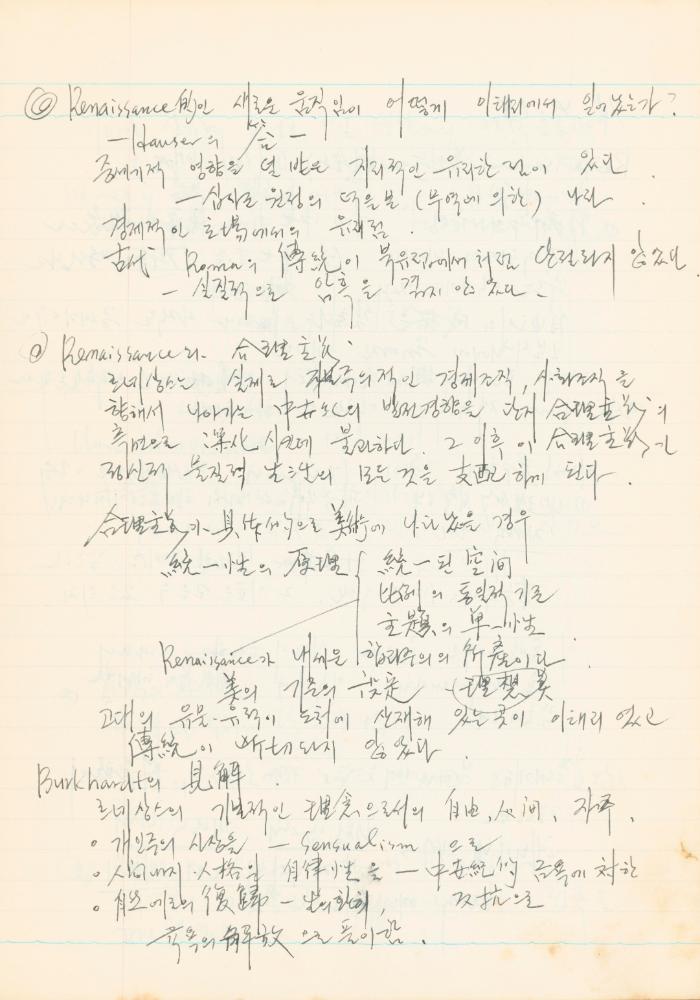 ◎ Renaissance的인 새로운 움직임이 어떻게 이태리에서 일어났는가?
— Hauser의 答 —
중세기적 영향을 덜 받은 지리적인 유리한 점이 있다.
— 십자로 원정의 덕을 본 (무역에 의한) 나라.
경제적인 호場에서의 유리점.
古代 Roma의 傳統이 북유럽에서처럼 단절되지 않았다
— 실질적으로 암흑을 겪지 않았다 —
Renaissance와 合理主義
르네상스는 실제로 적인 경제조직, 사회조직을
향해서 나아가는 中世紀의 발전경향을 단지 合理主義의
측면으로 深化 시킨데 불과하다. 그 이후 이 合理主義가
정신적 물질적 生活의 모든 것을 支配하게 된다.
合理主義가 具体的으로 美術에 나타났을 경우
統一性의 原理 { 統一된 空间
比例의 통일적 기준
主題의 單一性
Renaissance가 내세운 합리주의의 所産이다.
美의 기준의 設定 (理想美
고대의 유물·유적이 도처에 산재해 있는 곳이 이태리였고
傳統이 斷切되지 않았다
Burkhardt의 見解.
르네상스의 기본적인 理念으로서의 自由, 人间, 자주,
• 개인주의 사상을 — Sensualism 으로
• 人格의 自律性을 — 中世紀的 금욕에 対한
• 自然에로의 復歸 — 反抗으로
육욕의 解放 으로 풀이함.